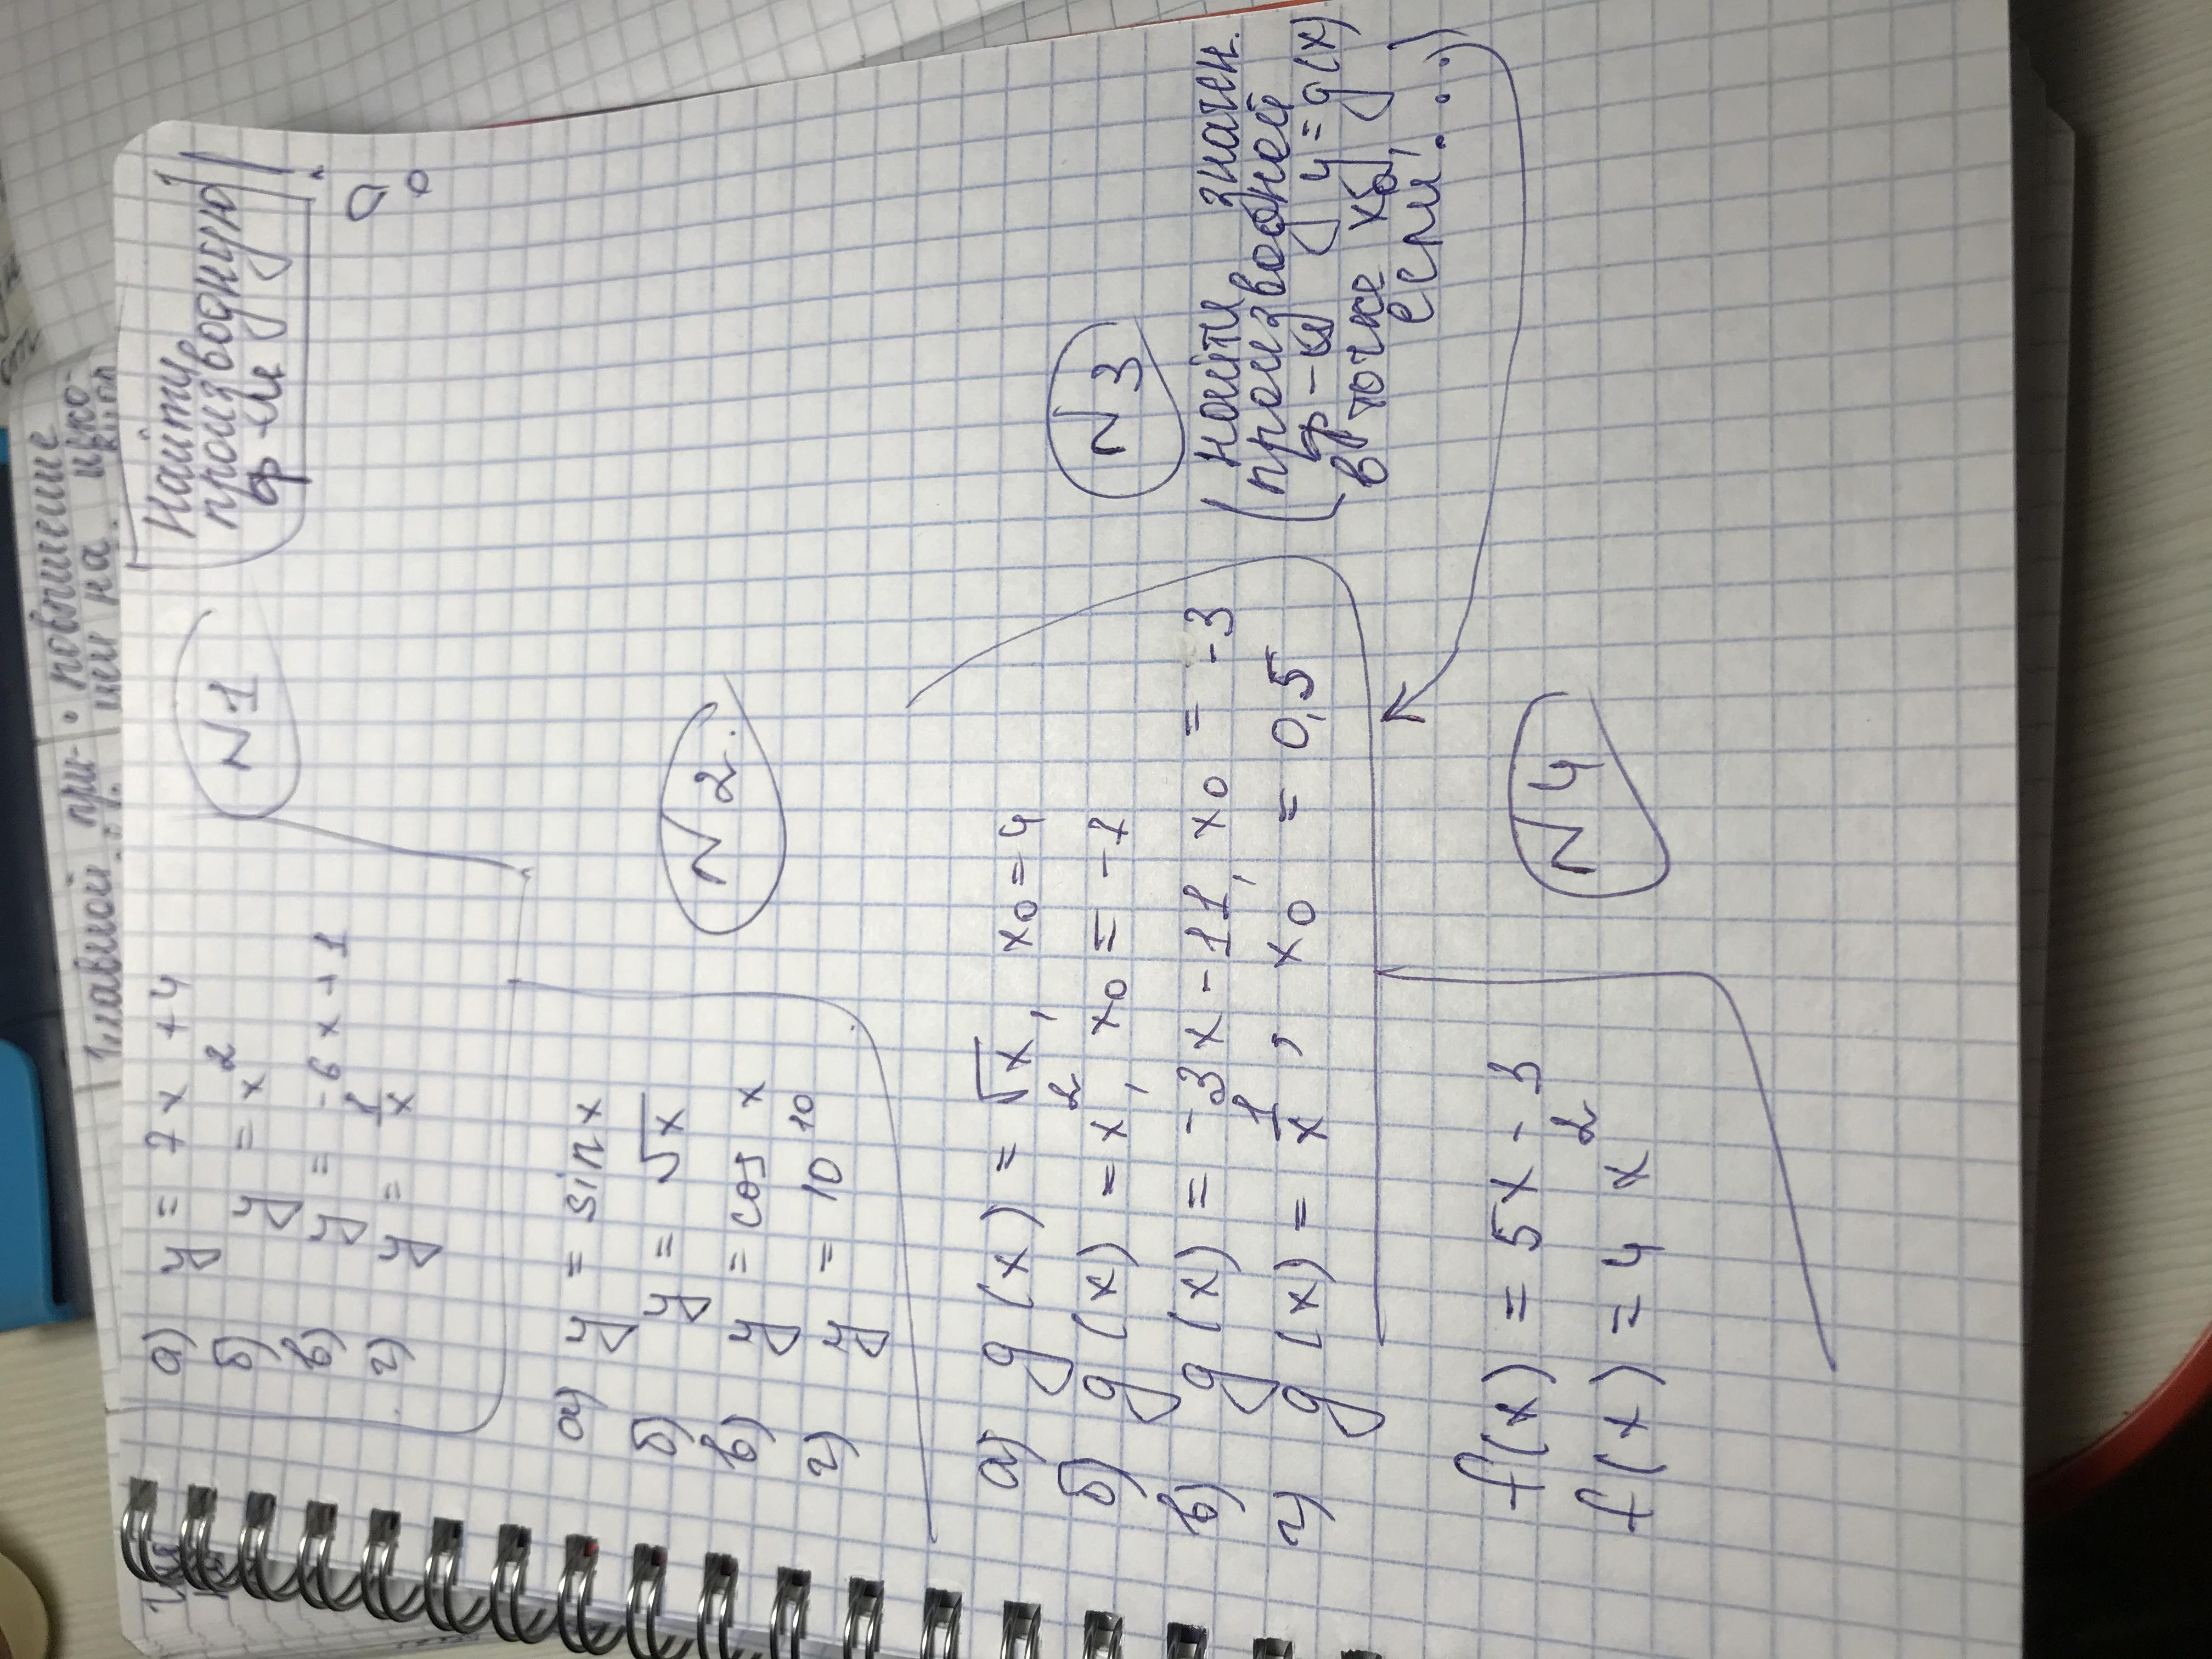 Найти
производную
ф-ли
N1
а) y = 7x + 4
б) y = x²
в) y = -6x + 1
г) y = 1/x
N2.
а) y = sin x
б) y = √x
в) y = cos x
г) y = 10¹⁰
N3
(Найти значен.
производней
ф-ы y = g(x)
в точке x₀,
если. ...)
а) g(x) = √x, x₀ = 4
б) g(x) = x², x₀ = -1
в) g(x) = -3x - 11, x₀ = -3
г) g(x) = 1/x, x₀ = 0,5
N4
f(x) = 5x - 3
f(x) = 4x²